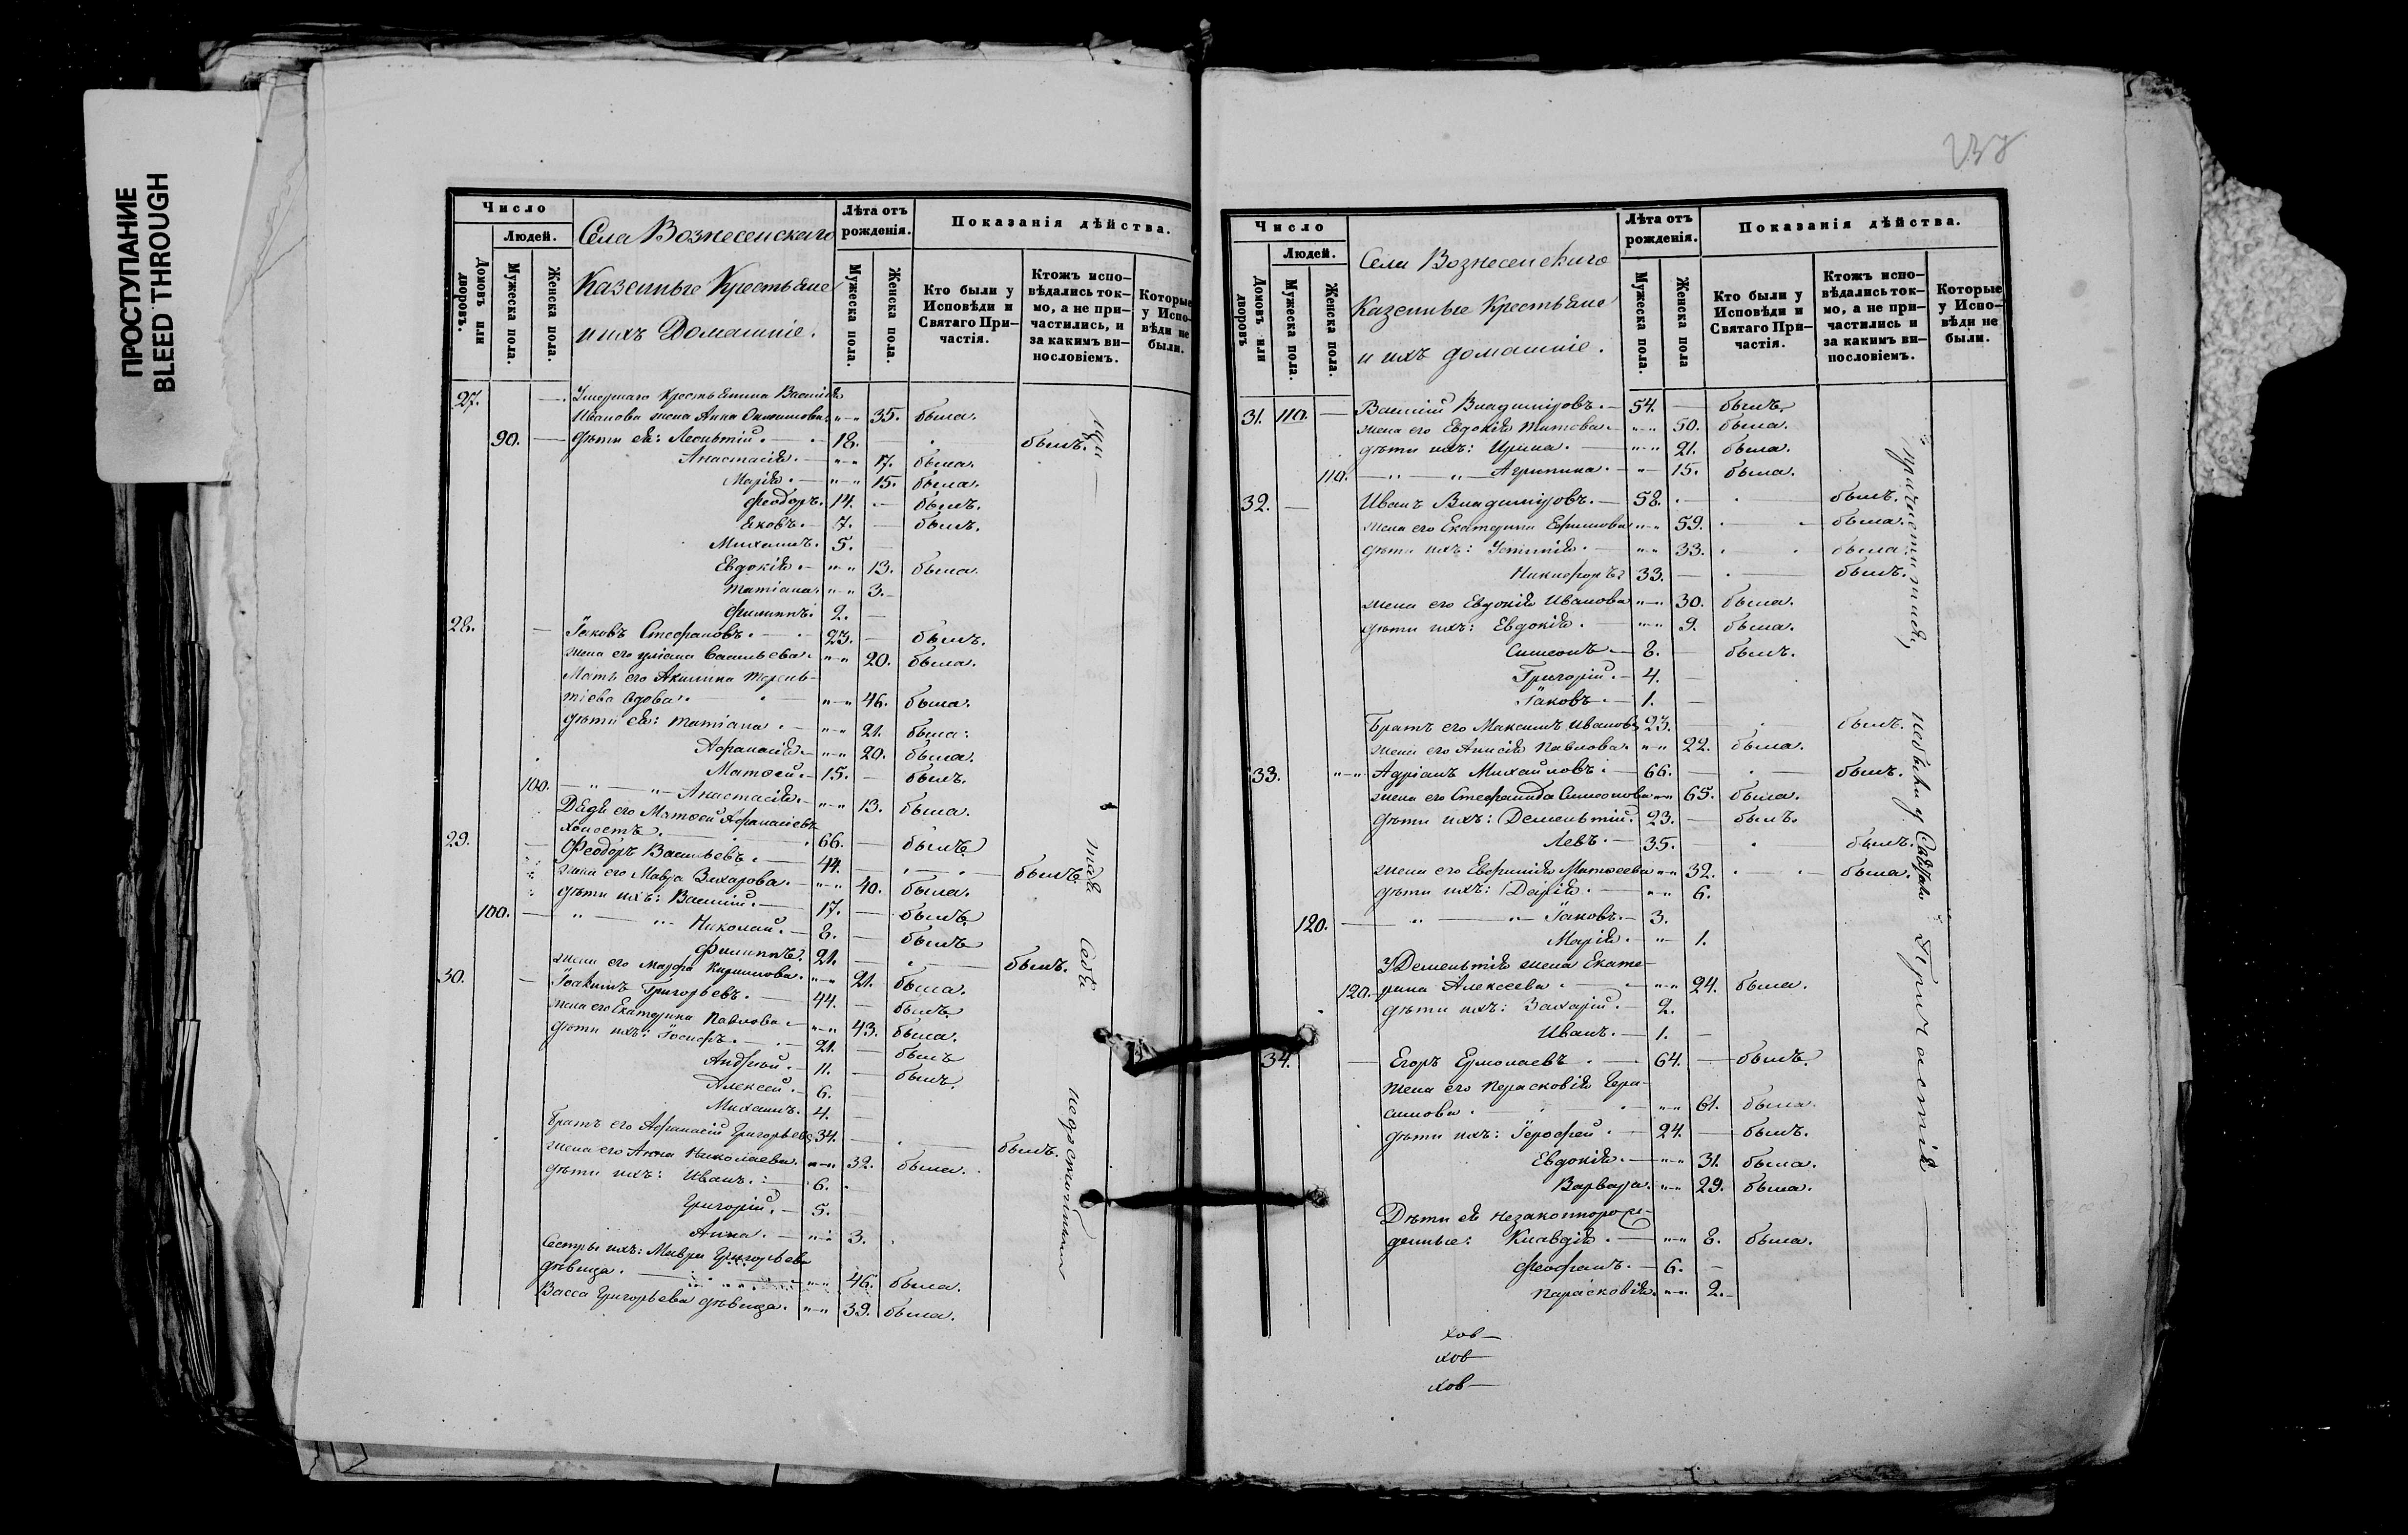 ПРОСТУПАНИЕ
BLEED THROUGH
Число
Людей.
Домовъ или дворовъ.
Мужеска пола.
Женска пола.
Села Вознесенскаго
Казенные Крестьяне
и ихъ Домашніе.
Лѣта отъ рожденія.
Мужеска пола.
Женска пола.
Показанія дѣйства.
Кто были у Исповѣди и Святаго Причастія.
Ктожъ исповѣдались токмо, а не причастились, и за какимъ винословіемъ.
Которые у Исповѣди не были.
27. — Умершаго крестьянина Василія
Иванова жена Анна 35. была.
90. — дѣти ея: Леонтій. 18. былъ.
Анастасія. 17. была.
Марія. 15. была.
Феодоръ. 14. — былъ.
Яковъ. 7. — былъ.
Михаилъ. 5. —
Евдокія. 13. была.
Татіана. 3.
Филиппъ. 2. —
28. — Іаковъ Стефановъ. 23. — былъ.
жена его Уліана Васильева. 20. была.
Мать его Акилина Терень-
тіева вдова. 46. была.
дѣти ея: Татіана. 21. была.
Афанасія. 20. была.
Матѳей. 15. — былъ.
100. Анастасія. 13. была.
Дядя его Матѳей Афанасіевъ
холостъ. 66. — былъ.
29. — Феодоръ Васильевъ. 44. — былъ.
жена его Мавра Захарова. 40. была.
дѣти ихъ: Василій. 17. — былъ.
100. — Николай. 8. — былъ
Филиппъ. 21. — былъ.
жена его Марфа Кирилова. 21. была.
30. — Іоакимъ Григорьевъ. 44. — былъ.
жена его Екатерина Павлова. 43. была.
дѣти ихъ: Іосифъ. 21. — былъ
Андрей. 11. — былъ.
Алексей. 6. —
Михаилъ. 4. —
братъ его Афанасій Григорьевъ 34. — былъ.
жена его Анна Николаева. 32. была.
дѣти ихъ: Иванъ. 6.
Григорій. 5. —
Анна. 3.
Сестры ихъ: Мавра Григорьева
дѣвица. 46. была.
Васса Григорьева дѣвица. 39. была.
при
тая
себя
недостойным
237
Число
Людей.
Домовъ или дворовъ
Мужеска пола.
Женска пола.
Села Вознесенскаго
Казенные Крестьяне
и ихъ домашніе.
Лѣта отъ рожденія.
Мужеска пола.
Женска пола
Показанія дѣйства.
Кто были у Исповѣди и Святаго Причастія.
Ктожъ исповѣдались токмо, а не причастились и за какимъ винословіемъ.
Которые у Исповѣди не были.
31. 110. — Василій Владиміровъ. 54. — былъ.
жена его Евдокія Титова. 50. была.
дѣти ихъ: Ирина. 21. была.
110. Агрипина. 15. была.
32. — Иванъ Владиміровъ. 58. былъ.
жена его Екатерина Ефимова 59. была.
дѣти ихъ: Устинія. 33. была.
Никифоръ 33. — былъ.
жена его Евдокія Иванова 30. была.
дѣти ихъ: Евдокія. 9. была.
Симеонъ 8. — былъ.
Григорій. 4. —
Іаковъ. 1. —
Братъ его Максимъ Ивановъ 23. — былъ.
жена его Анисія Павлова. 22. была.
33. Адріанъ Михайловъ. 66. — былъ.
жена его Стефанида Симеонова 65. была.
дѣти ихъ: Дементій. 23. — былъ.
Левъ. 35. — былъ.
жена его Евфимія Матѳеева 32. была.
дѣти ихъ: Дарія. 6.
120. — Іаковъ. 3.
Марія. 1.
У Дементія жена Екате-
120. рина Алексеева. 24. была.
дѣти ихъ: Захарій. 2.
Иванъ. 1. —
34. — Егоръ Ермолаевъ. 64. — былъ.
жена его Парасковія Гера-
симова. 61. была.
дѣти ихъ: Іерофей. 24. — былъ.
Евдокія. 31. была.
Варвара. 29. была.
Дѣти ея незаконнорож-
денные: Клавдія. 8. была.
Феофанъ. 6. —
Парасковія. 2.
Святаго Причастія